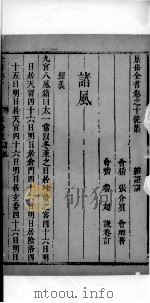 景岳全書卷之十從集 雜證謨
會稽 張介賓 會卿著
會稽 魯超 謙菴訂
諸風
經義
九宮八風篇曰太一常以冬至之日居叶蟄之宮四十六日明
日居天留四十六日明日居倉門四十六日明日居陰洛四
十五日明日居天宮四十六日明日居玄委四十六日明日